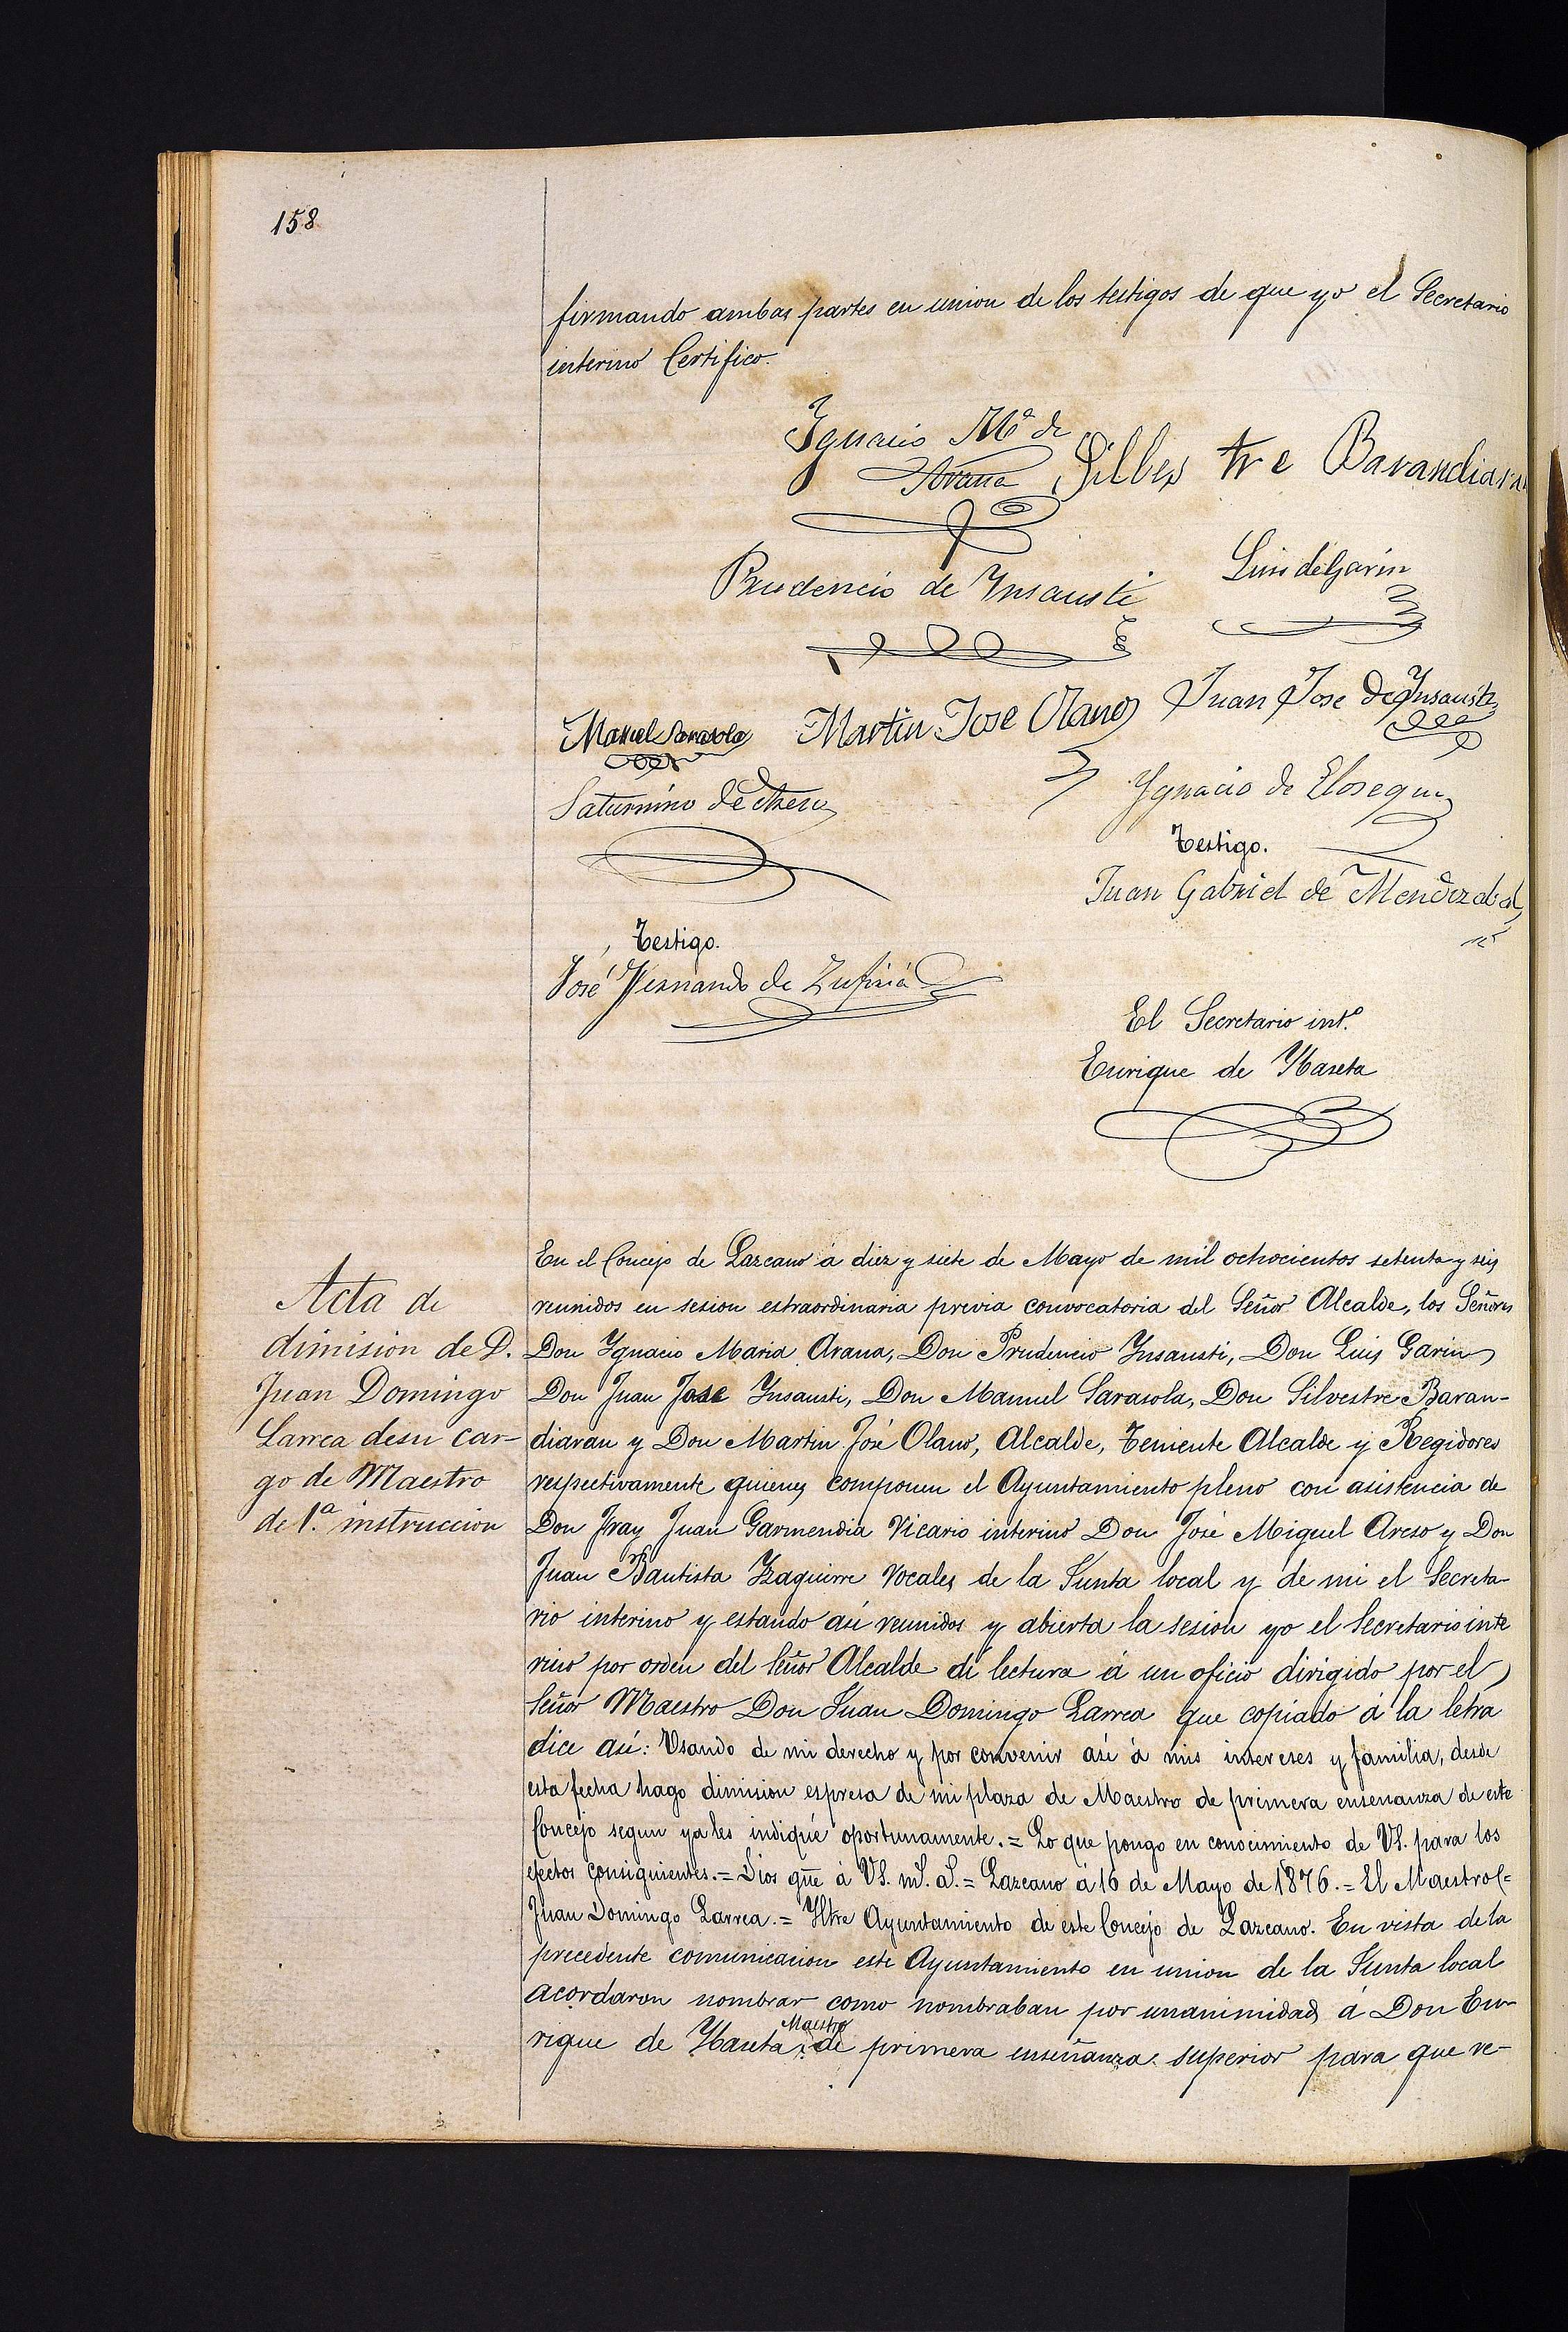 158
firmando ambas partes en union de los testigos de que yo el Secretario
interino Certifico.
Ignacio Mª de
Arana
Silbes tre Barandiaran
Prudencio de Ynsausti
Luis de Garin
Manuel Sarasola
Martin Jose Olano
Juan Jose de Ynsausti
Saturnino de
Ygnacio de Elosegui
Testigo.
Juan Gabriel de Mendizabal
Testigo.
José Fernando de Zufiria
El Secretario int.º
Enrique de Ybaseta
Acta de
dimision de D.
Juan Domingo
Larrea desu car-
go de Maestro
de 1.ª instruccion
En el Concejo de Lazcano á diez y siete de Mayo de mil ochocientos setenta y seis
reunidos en sesion estraordinaria previa convocatoria del Señor Alcalde, los Señores
Don Ygnacio Maria Arana, Don Prudencio Ynsausti, Don Luis Garin
Don Juan Jose Ynsausti, Don Manuel Sarasola, Don Silvestre Baran-
diaran y Don Martin José Olano, Alcalde, Teniente Alcalde y Regidores
respectivamente quienes componen el Ayuntamiento pleno con asistencia de
Don Fray Juan Garmendia Vicario interino Don José Miguel Areso y Don
Juan Bautista Yzaguirre Vocales de la Junta local y de mi el Secreta-
rio interino y estando asi reunidos y abierta la sesion yo el Secretario inte
rino por orden del Señor Alcalde di lectura á un oficio dirigido por el
Señor Maestro Don Juan Domingo Larrea que copiado á la letra
dice asi: Usando de mi derecho y por convenir asi á mis intereses y familia, desde
esta fecha hago dimision espresa de mi plaza de Maestro de primera ensenanza de este
Concejo segun ya les indiqué oportunamente. = Lo que pongo en conocimiento de VS. para los
efectos consiguientes. = Dios güe á VS. mS. aS. = Lazcano á 16 de Mayo de 1876. = El Maestro =
Juan Domingo Larrea. = Yltre Ayuntamiento de este Concejo de Lazcano. En vista de la
precedente comunicacion este Ayuntamiento en union de la Junta local
acordaron nombrar como nombraban por unanimidad á Don En-
rique de Ybaseta, Maestro de primera enseñanza superior para que ve-